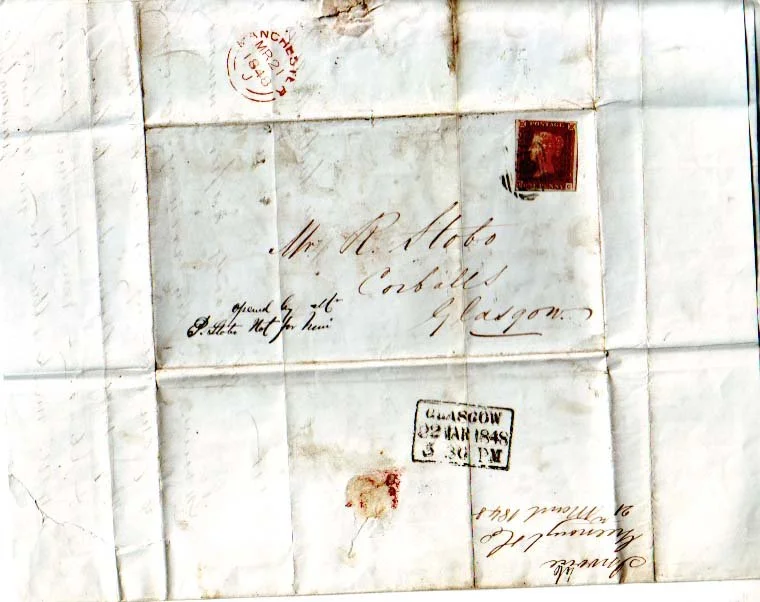 MANCHESTER
MR 21
1848
J
POSTAGE
ONE PENNY
Mr R. Stobo
Corballs
Glasgow
opend by Mr
P. Stobo Not for him
GLASGOW
22 MAR 1848
5 30 PM
Invoice
21 March 1848